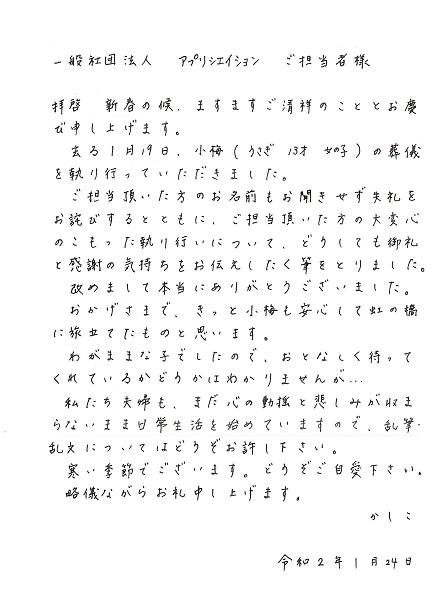 一般社団法人 アプリシエイション ご担当者様
拝啓 新春の候、ますますご清祥のこととお慶
び申し上げます。
去る1月19日、小梅(うさぎ 13才 女の子)の葬儀
を執り行っていただきました。
ご担当頂いた方のお名前もお聞きせず失礼を
お詫びするとともに、ご担当頂いた方の大変心
のこもった執り行いについて、どうしても御礼
と感謝の気持ちをお伝えしたく筆をとりました。
改めまして本当にありがとうございました。
おかげさまで、きっと小梅も安心して虹の橋
に旅立てたものと思います。
わがままな子でしたので、おとなしく待って
くれているかどうかはわかりませんが…
私たち夫婦も、まだ心の動揺と悲しみが収ま
らないまま日常生活を始めていますので、乱筆・
乱文についてはどうぞお許し下さい。
寒い季節でございます。どうぞご自愛下さい。
略儀ながらお礼申し上げます。
かしこ
令和2年1月24日